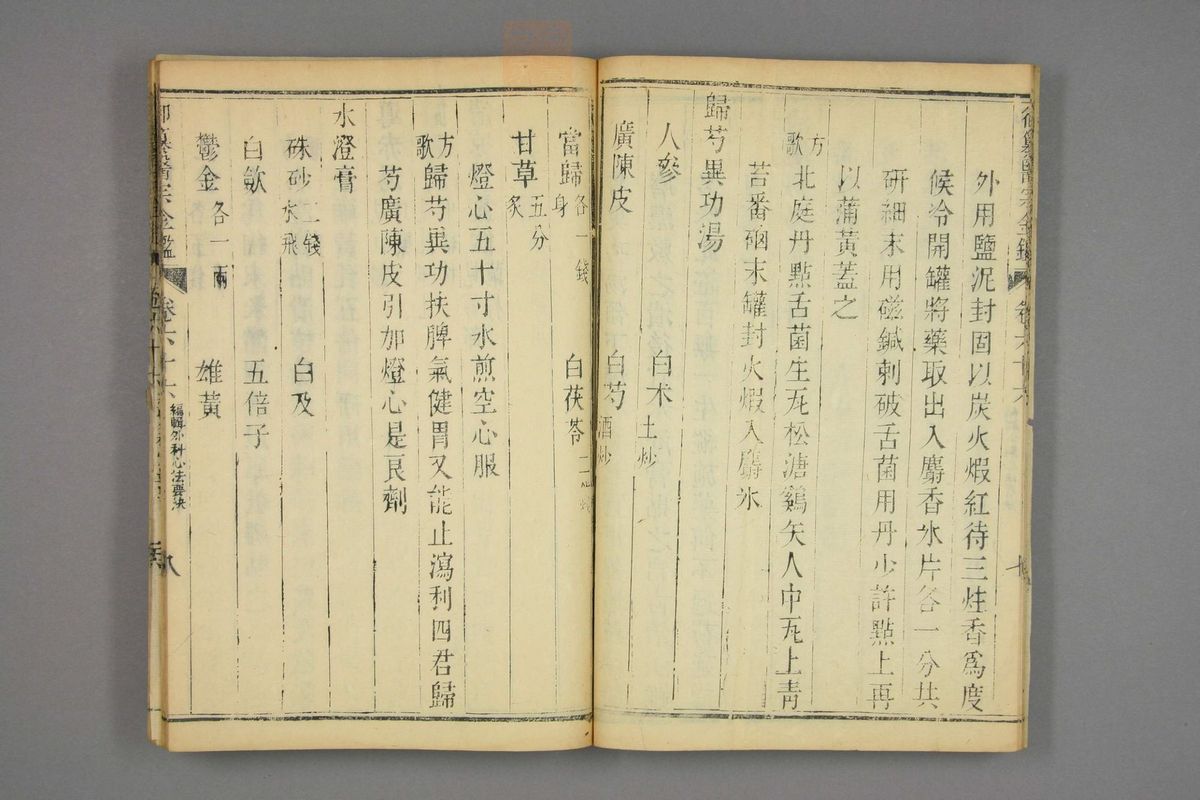 外用鹽泥封固以炭火煅紅待三炷香爲度
候冷開罐將藥取出入麝香氷片各一分共
研細末用磁鍼刺破舌菌用丹少許點上再
以蒲黃蓋之
方歌 北庭丹點舌菌生瓦松溏鷄矢人中瓦上青
苔番硇末罐封火煅入麝氷
歸芍異功湯
人參 白朮土炒
廣陳皮 白芍酒炒
當歸身各一錢 白茯苓二錢
甘草五分炙
燈心五十寸水煎空心服
方歌 歸芍異功扶脾氣健胃又能止瀉利四君歸
芍廣陳皮引加燈心是良劑
水澄膏
硃砂二錢水飛 白及
白斂 五倍子
鬱金各一兩 雄黃
御纂醫宗金鑑 卷六十六 編輯外科心法要訣